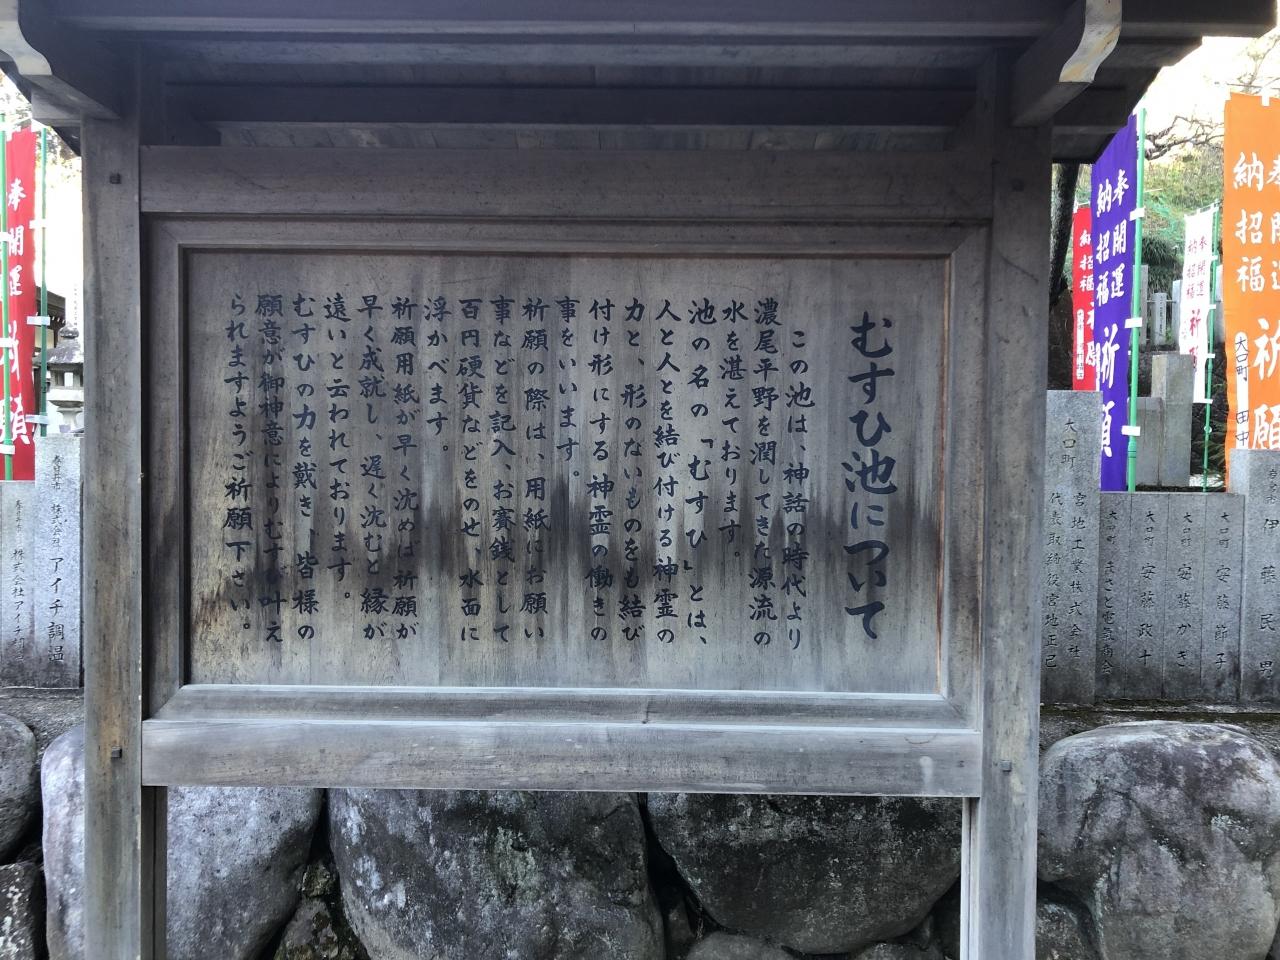 むすひ池について
この池は、神話の時代より
濃尾平野を潤してきた源流の
水を湛えております。
池の名の「むすひ」とは、
人と人とを結び付ける神霊の
力と、形のないものをも結び
付け形にする神霊の働きの
事をいいます。
祈願の際は、用紙にお願い
事などを記入、お賽銭として
百円硬貨などをのせ、水面に
浮かべます。
祈願用紙が早く沈めば祈願が
早く成就し、遅く沈むと縁が
遠いと云われております。
むすひの力を戴き、皆様の
願意が御神意によりむすび叶え
られますようご祈願下さい。
奉開運
納招福
祈願
大口町
田中
奉開運
納招福
祈願
奉開運
納招福
祈
奉開運
願
伊藤民男
大口町 安藤節子
大口町 安藤かぎ
大口町 安藤政十
大口町 まさと電気商会
大口町 宮地工業株式会社
代表取締役宮地正己
株式会社アイチ調温
株式会社アイチ